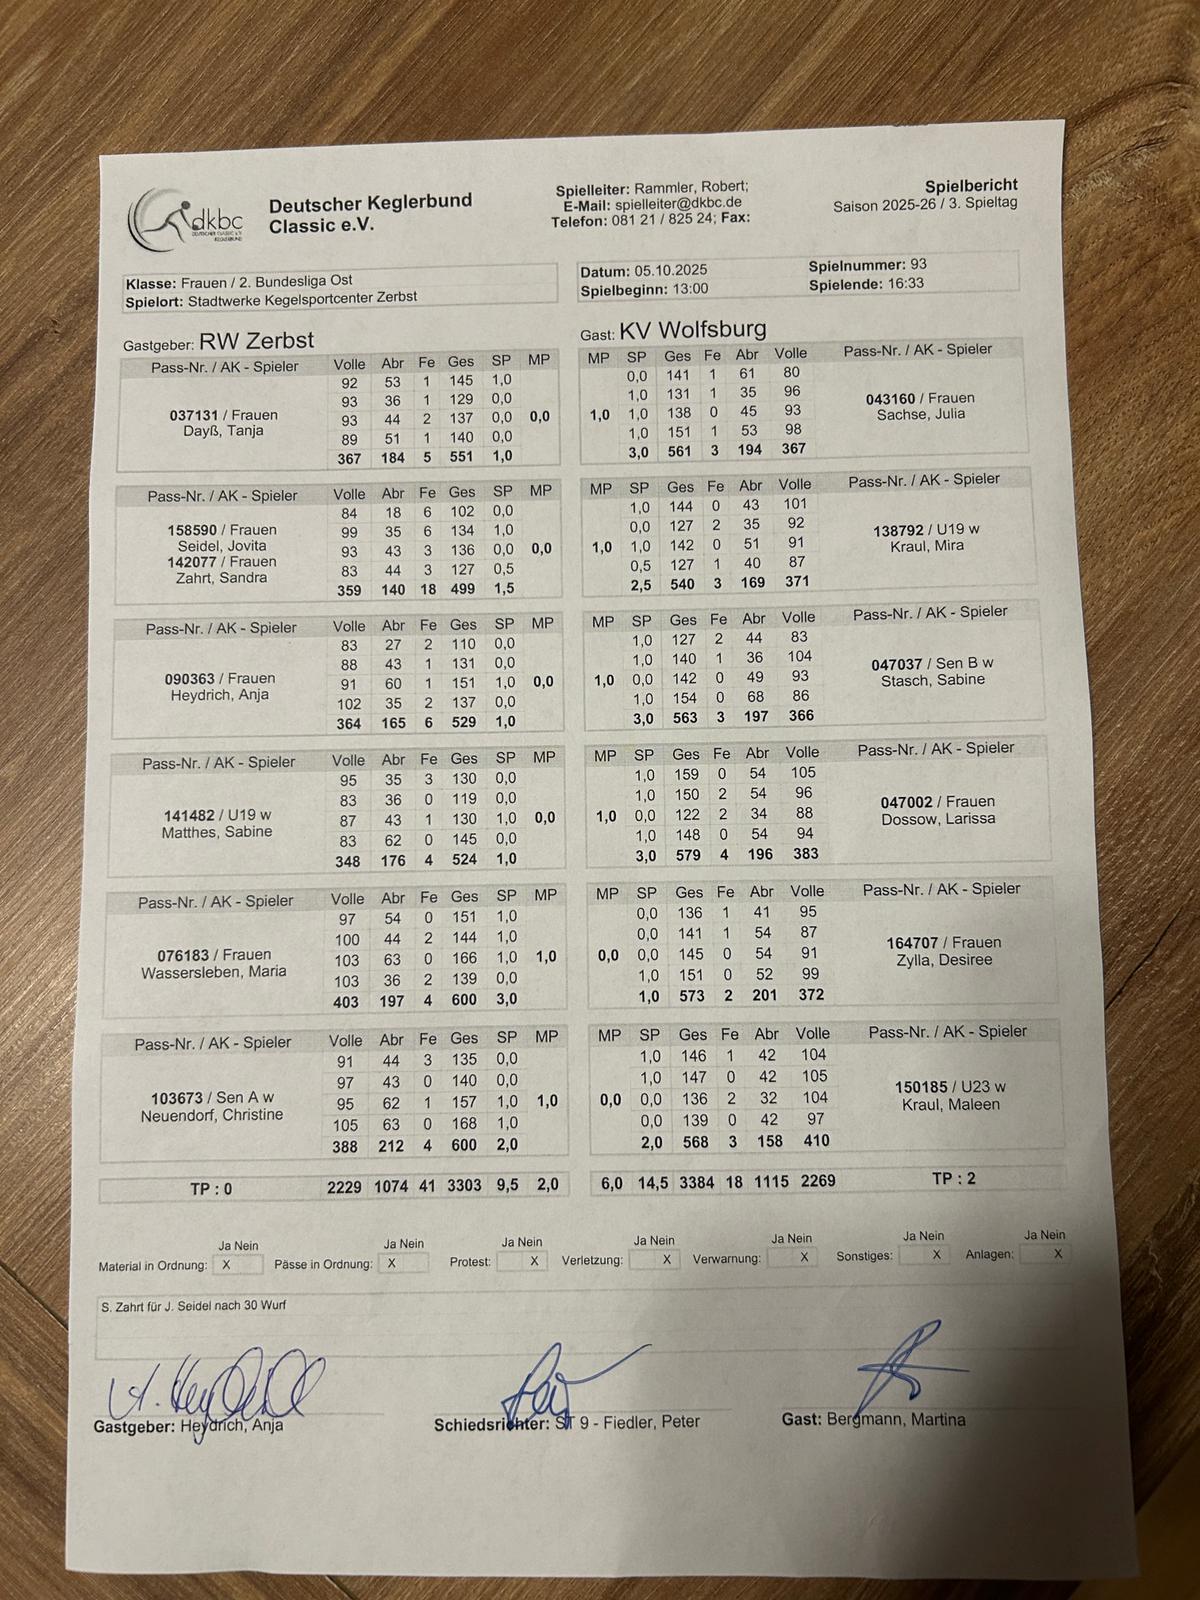 dkbc
Deutscher Keglerbund
Classic e.V.
Spielleiter: Rammler, Robert;
E-Mail: spielleiter@dkbc.de
Telefon: 081 21 / 825 24; Fax:
Spielbericht
Saison 2025-26 / 3. Spieltag
Klasse: Frauen / 2. Bundesliga Ost
Spielort: Stadtwerke Kegelsportcenter Zerbst
Datum: 05.10.2025 Spielnummer: 93
Spielbeginn: 13:00 Spielende: 16:33
Gastgeber: RW Zerbst Gast: KV Wolfsburg
Pass-Nr. / AK - Spieler Volle Abr Fe Ges SP MP MP SP Ges Fe Abr Volle Pass-Nr. / AK - Spieler
92 53 1 145 1,0 0,0 141 1 61 80
93 36 1 129 0,0 1,0 131 1 35 96
037131 / Frauen 93 44 2 137 0,0 0,0 1,0 1,0 138 0 45 93 043160 / Frauen
Dayß, Tanja 89 51 1 140 0,0 1,0 151 1 53 98 Sachse, Julia
367 184 5 551 1,0 3,0 561 3 194 367
Pass-Nr. / AK - Spieler Volle Abr Fe Ges SP MP MP SP Ges Fe Abr Volle Pass-Nr. / AK - Spieler
84 18 6 102 0,0 1,0 144 0 43 101
158590 / Frauen 99 35 6 134 1,0 0,0 127 2 35 92 138792 / U19 w
Seidel, Jovita 93 43 3 136 0,0 0,0 1,0 1,0 142 0 51 91 Kraul, Mira
142077 / Frauen 83 44 3 127 0,5 0,5 127 1 40 87
Zahrt, Sandra 359 140 18 499 1,5 2,5 540 3 169 371
Pass-Nr. / AK - Spieler Volle Abr Fe Ges SP MP MP SP Ges Fe Abr Volle Pass-Nr. / AK - Spieler
83 27 2 110 0,0 1,0 127 2 44 83
88 43 1 131 0,0 1,0 140 1 36 104
090363 / Frauen 91 60 1 151 1,0 0,0 1,0 0,0 142 0 49 93 047037 / Sen B w
Heydrich, Anja 102 35 2 137 0,0 1,0 154 0 68 86 Stasch, Sabine
364 165 6 529 1,0 3,0 563 3 197 366
Pass-Nr. / AK - Spieler Volle Abr Fe Ges SP MP MP SP Ges Fe Abr Volle Pass-Nr. / AK - Spieler
95 35 3 130 0,0 1,0 159 0 54 105
83 36 0 119 0,0 1,0 150 2 54 96
141482 / U19 w 87 43 1 130 1,0 0,0 1,0 0,0 122 2 34 88 047002 / Frauen
Matthes, Sabine 83 62 0 145 0,0 1,0 148 0 54 94 Dossow, Larissa
348 176 4 524 1,0 3,0 579 4 196 383
Pass-Nr. / AK - Spieler Volle Abr Fe Ges SP MP MP SP Ges Fe Abr Volle Pass-Nr. / AK - Spieler
97 54 0 151 1,0 0,0 136 1 41 95
100 44 2 144 1,0 0,0 141 1 54 87
076183 / Frauen 103 63 0 166 1,0 1,0 0,0 0,0 145 0 54 91 164707 / Frauen
Wassersleben, Maria 103 36 2 139 0,0 1,0 151 0 52 99 Zylla, Desiree
403 197 4 600 3,0 1,0 573 2 201 372
Pass-Nr. / AK - Spieler Volle Abr Fe Ges SP MP MP SP Ges Fe Abr Volle Pass-Nr. / AK - Spieler
91 44 3 135 0,0 1,0 146 1 42 104
97 43 0 140 0,0 1,0 147 0 42 105
103673 / Sen A w 95 62 1 157 1,0 1,0 0,0 0,0 136 2 32 104 150185 / U23 w
Neuendorf, Christine 105 63 0 168 1,0 0,0 139 0 42 97 Kraul, Maleen
388 212 4 600 2,0 2,0 568 3 158 410
TP : 0 2229 1074 41 3303 9,5 2,0 6,0 14,5 3384 18 1115 2269 TP : 2
Ja Nein Ja Nein Ja Nein Ja Nein Ja Nein Ja Nein Ja Nein
Material in Ordnung: X Pässe in Ordnung: X Protest: X Verletzung: X Verwarnung: X Sonstiges: X Anlagen: X
S. Zahrt für J. Seidel nach 30 Wurf
Gastgeber: Heydrich, Anja Schiedsrichter: ST 9 - Fiedler, Peter Gast: Bergmann, Martina